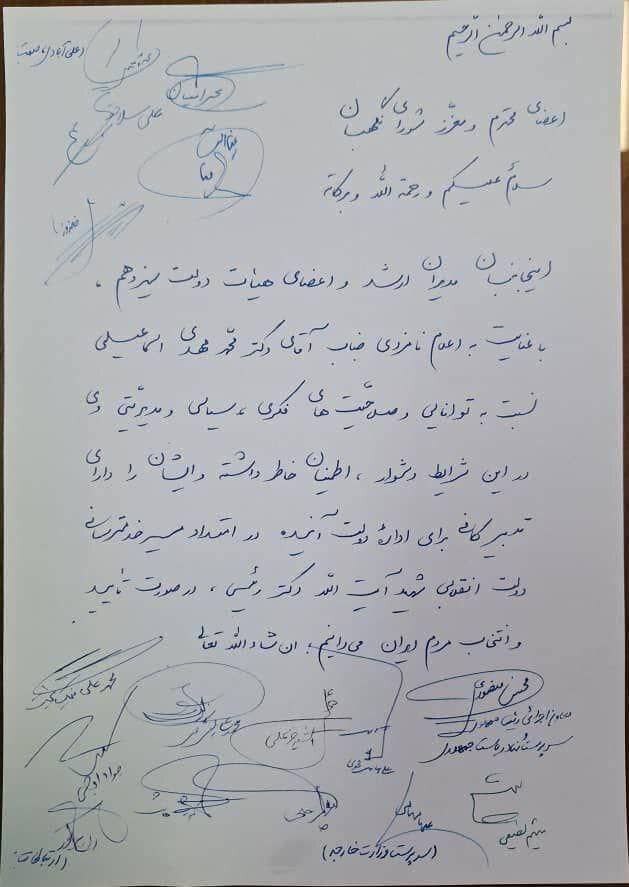 بسم الله الرحمن الرحیم
اعضای محترم و معزّز شورای نگهبان
سلامٌ علیکم و رحمة الله و برکاته
اینجانبان مدیران ارشد و اعضای هیأت دولت سیزدهم،
با عنایت به اعلام نامزدی جناب آقای دکتر محمّدمهدی اسماعیلی
نسبت به توانایی و صلاحیّت‌های فکری، سیاسی و مدیریّتی وی
در این شرایط دشوار، اطمینان خاطر داشته و ایشان را دارای
تدبیر کافی برای ادارهٔ دولت آینده در امتداد مسیر خدمترسانی
دولت انقلابی شهید آیت الله دکتر رئیسی، در صورت تأیید
و انتخاب مردم ایران می‌دانیم؛ ان شاءالله تعالی
علی سلاجقه
محسن منصوری
معاون اجرائی رئیس جمهور
سرپرست نهاد ریاست جمهوری
میثم لطیفی
(سرپرست وزارت خارجه)